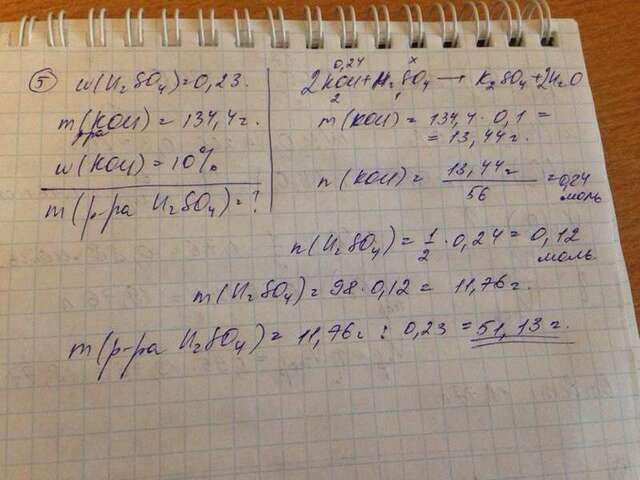 5 w(H₂SO₄)=0,23.
m(KOH)=134,4г.
р-ра
w(KOH)=10%
m(р-ра H₂SO₄)=?
0,24 x
2KOH+H₂SO₄ → K₂SO₄+2H₂O
2 1
m(KOH)=134,4·0,1=
=13,44г.
n(KOH)=13,44г/56=0,24 моль
n(H₂SO₄)=1/2·0,24=0,12 моль
m(H₂SO₄)=98·0,12=11,76г.
m(р-ра H₂SO₄)=11,76г:0,23=51,13г.